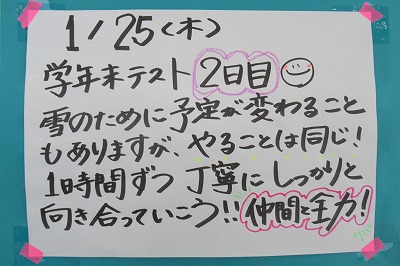 1/25(木)
学年末テスト 2日目
雪のために予定が変わること
もありますが、やることは同じ!
1時間ずつ 丁寧に しっかりと
向き合っていこう!! 仲間と全力!